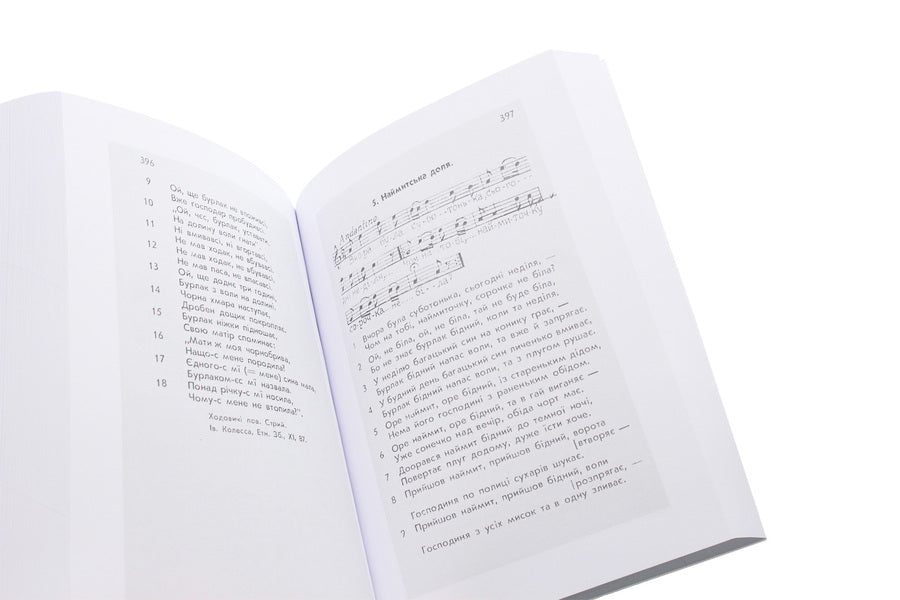 396
9 Ой, ще бурлак не вположивсі,
Вже господар пробудивсі.
10 „Ой, чєс, бурлак, уставати,
На долину воли гнати"
11 Ні вмивавсі, ні вгортавсі,
Не мав ходак, не вбувавсі,
12 Не мав ходак, не вбувавсі,
Не мав паса, не впасавсі.
13 Ой, ще доднє три години,
Бурлак з воли на долині,
14 Чорна хмара наступає,
Дробен дощик покропляє,
15 Бурлак ніжки підношає,
Свою матір споминає:
16 „Мати ж моя чорнобрива,
Нащо-с мене породила!
17 Єдного-с мї (= мене) сина мала,
Бурлаком-єс мї назвала.
18 Понад річку-с мї носила,
Чому-с мене не втопила!".
Ходовичі пов. Стрий.
Ів. Колесса, Етн. Зб., XI, 87.
397
5. Наймитська доля.
Andantino
Вчора була су-бо--тонь-ка, сьо-го--
дні не-ді-ля,
най-ми-точ-ку
со-роч-ка не бі-ла?
1 Вчора була суботонька, сьогодні неділя, —
Чом на тобі, наймиточку, сорочко не біла?
2 Ой, не біла, ой, не біла, тай не буде біла,
Бо не знає бурлак бідний, коли та неділя.
3 У неділю багацький син на конику грає, —
Бурлак бідний напас воли, та вже й запрягає.
4 У будний день багацький син личенько вмиває,
Бурлак бідний напас воли, та з плугом рушає.
5 Оре наймит, оре бідний, із стареньким дідом,
Нема його господині з раненьким обідом.
6 Оре наймит, оре бідний, та в гай виганяє —
Уже сонечко над вечір, обіда чорт має.
7 Доорався наймит бідний до темної ночі,
Повертає плуг додому, дуже їсти хоче.
8 Прийшов наймит, прийшов бідний, ворота
[втворяє —
Господиня по полиці сухарів шукає.
9 Прийшов наймит, прийшов бідний, воли
[розпрягає, —
Господиня з усіх мисок та в одну зливає.